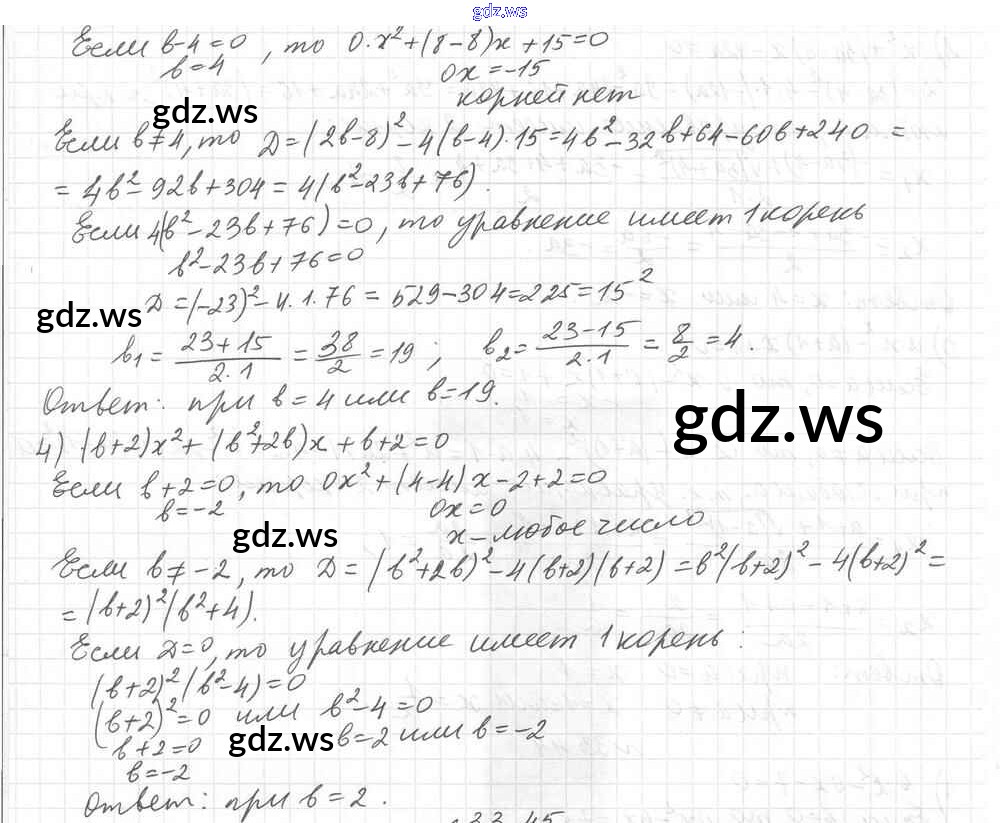 gdz.ws
Если b-4=0, то 0·x²+(8-8)x+15=0
b=4 0x=-15
корней нет
gdz.ws
Если b≠4, то D=(2b-8)²-4(b-4)·15=4b²-32b+64-60b+240 =
= 4b²-92b+304=4(b²-23b+76).
Если 4(b²-23b+76)=0, то уравнение имеет 1 корень
b²-23b+76=0
D=(-23)²-4·1·76=529-304=225=15²
gdz.ws
b₁= (23+15)/(2·1) = 38/2 =19; b₂= (23-15)/(2·1) = 8/2 =4.
Ответ: при b=4 или b=19.
gdz.ws
4) (b+2)x²+(b²+2b)x+b+2=0
Если b+2=0, то 0x²+(4-4)x-2+2=0
b=-2 0x=0
gdz.ws x-любое число
Если b≠-2, то D=(b²+2b)²-4(b+2)(b+2)=b²(b+2)²-4(b+2)²=
=(b+2)²(b²+4).
Если D=0, то уравнение имеет 1 корень:
(b+2)²(b²-4)=0
(b+2)²=0 или b²-4=0
b+2=0 gdz.ws b=2 или b=-2
b=-2
Ответ: при b=2.